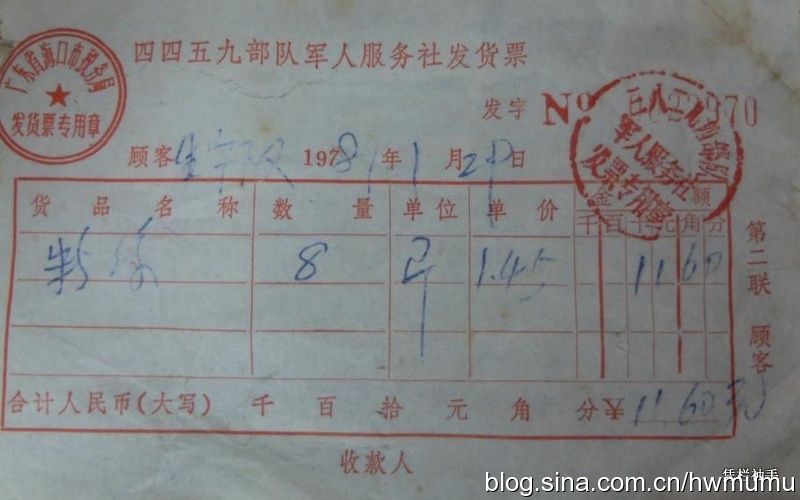 四四五九部队军人服务社发货票
广东省海口市税务局
发货票专用章
发字 No
军人服务社
发票专用章
顾客 197 年 1 月 29 日
货品名称 数量 单位 单价 金额
千 百 十 元 角 分
8 斤 1.45 11 60
第二联 顾客
合计人民币(大写) 千 百 拾 元 角 分 ¥ 11.60
收款人
凭栏袖手
blog.sina.com.cn/hwmumu